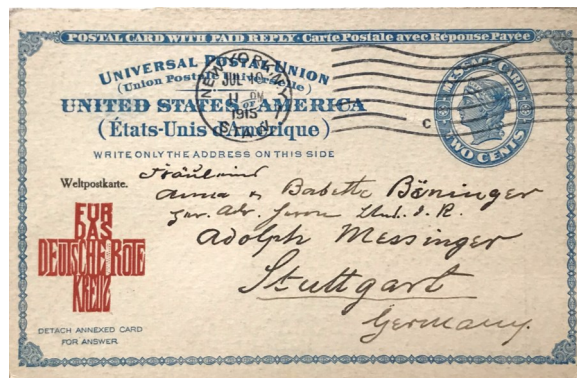 POSTAL CARD WITH PAID REPLY - Carte Postale avec Réponse Payée
UNIVERSAL POSTAL UNION
(Union Postale Universelle)
UNITED STATES OF AMERICA
(États-Unis d'Amérique)
WRITE ONLY THE ADDRESS ON THIS SIDE
NEW YORK, N.Y.
JUL 10
11 PM
1915
MESSAGE CARD
TWO CENTS
C
Weltpostkarte.
FÜR
DAS
DEUTSCHE ROTE
KREUZ
Fräulein
Anna & Babette Böninger
Adr. Herrn
Adolph Messinger
Stuttgart
Germany.
DETACH ANNEXED CARD
FOR ANSWER